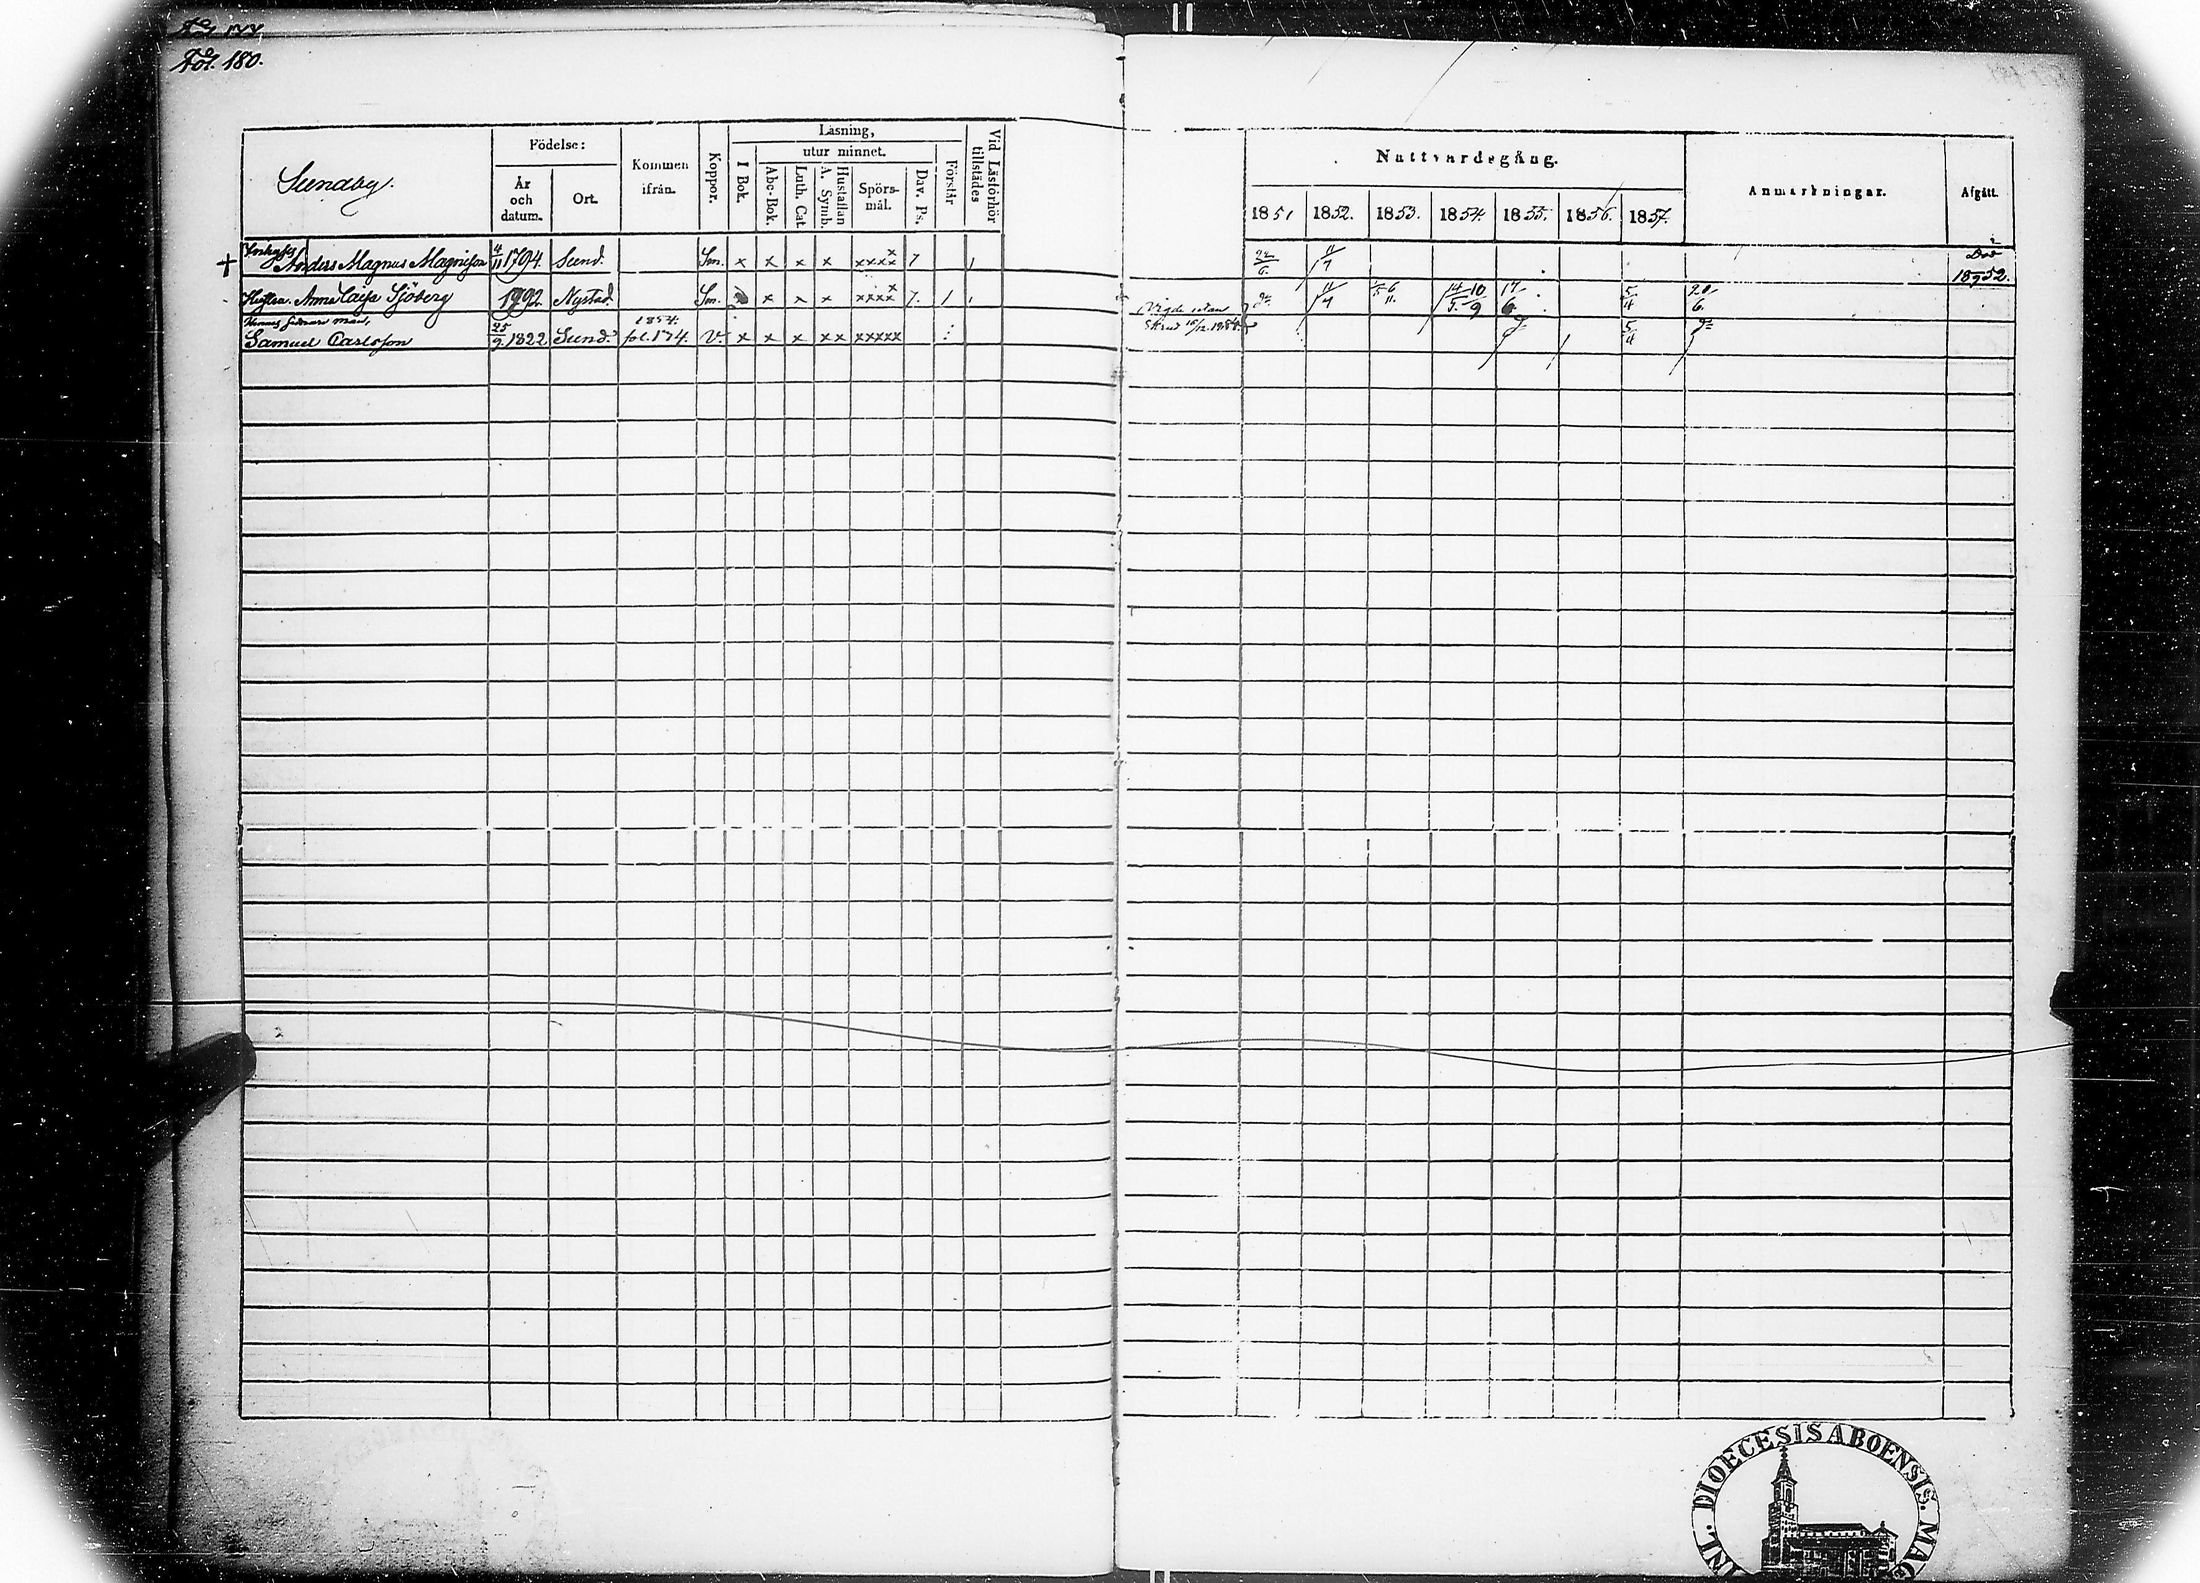 Fol. 180.
Sundby.
Födelse:
År och datum.
Ort.
Kommen ifrån.
Koppor.
Läsning,
I Bok.
utur minnet.
Abc-Bok.
Luth. Cat.
Hustaflan A. Symb.
Spörsmål.
Dav. Ps.
Förstår
Vid Läsförhör tillstädes
Nattvardsgång.
1851 1852. 1853. 1854. 1855. 1856. 1857.
Anmärkningar.
Afgått.
Anders Magnus Magnisson 4/11 1794. Sund. Sm. x x x x xxxxx 7 22/6. 11/4 Död 1852.
Hustru. Anna Caisa Sjöberg 1792 Nystad. Sm. x x x xxxxx 7. 11/4 14/5 10/9 17/6 5/4 20/6.
Hennes sednare man,
Samuel Carlsson 25/9 1822 Sund. 1854. fol. 174. V. x x x xx xxxxx Vigde utan 5/4
FINL. DIOECESIS ABOENSIS. MAG